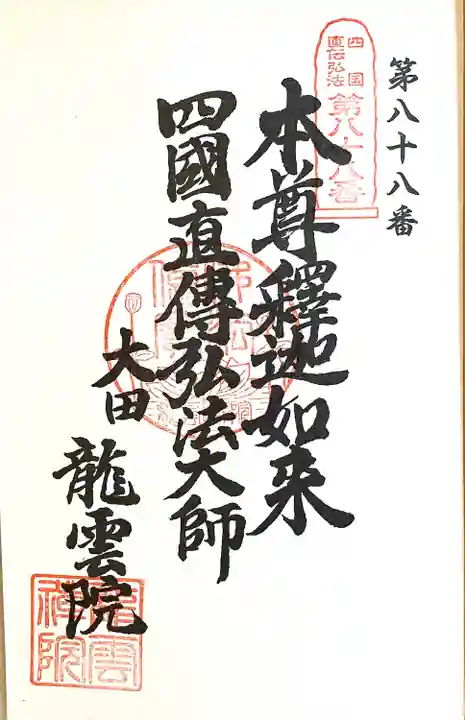 第八十八番
四国
直伝弘法
第八十八番
本尊釋迦如来
四國直傳弘法大師
大田
龍雲院